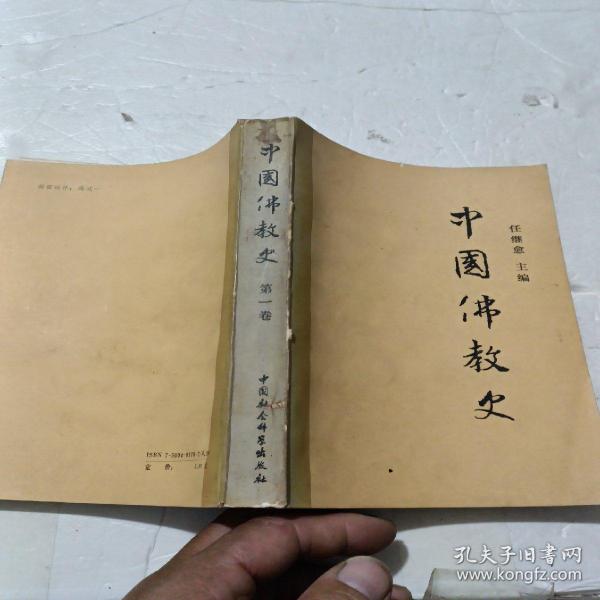 中國佛教史
任继愈 主编
中國佛教史
第一卷
中国社会科学出版社
ISBN 7-5004-
定 价:
孔夫子旧书网
www.kongfz.com